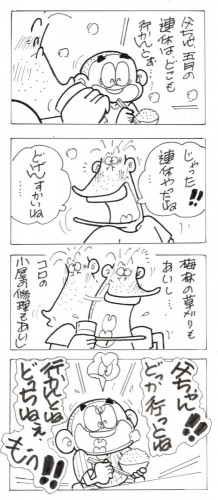 父ちゃん五月の
連休はどこも
行かんとね
じゃった!!
連休やったね
どげんすかいね
……
梅林の草刈りも
あいし…
コロの
小屋の修理もあい
父ちゃん!!
どっか行っとね
行かんとね
どっちねぇ
もう!!